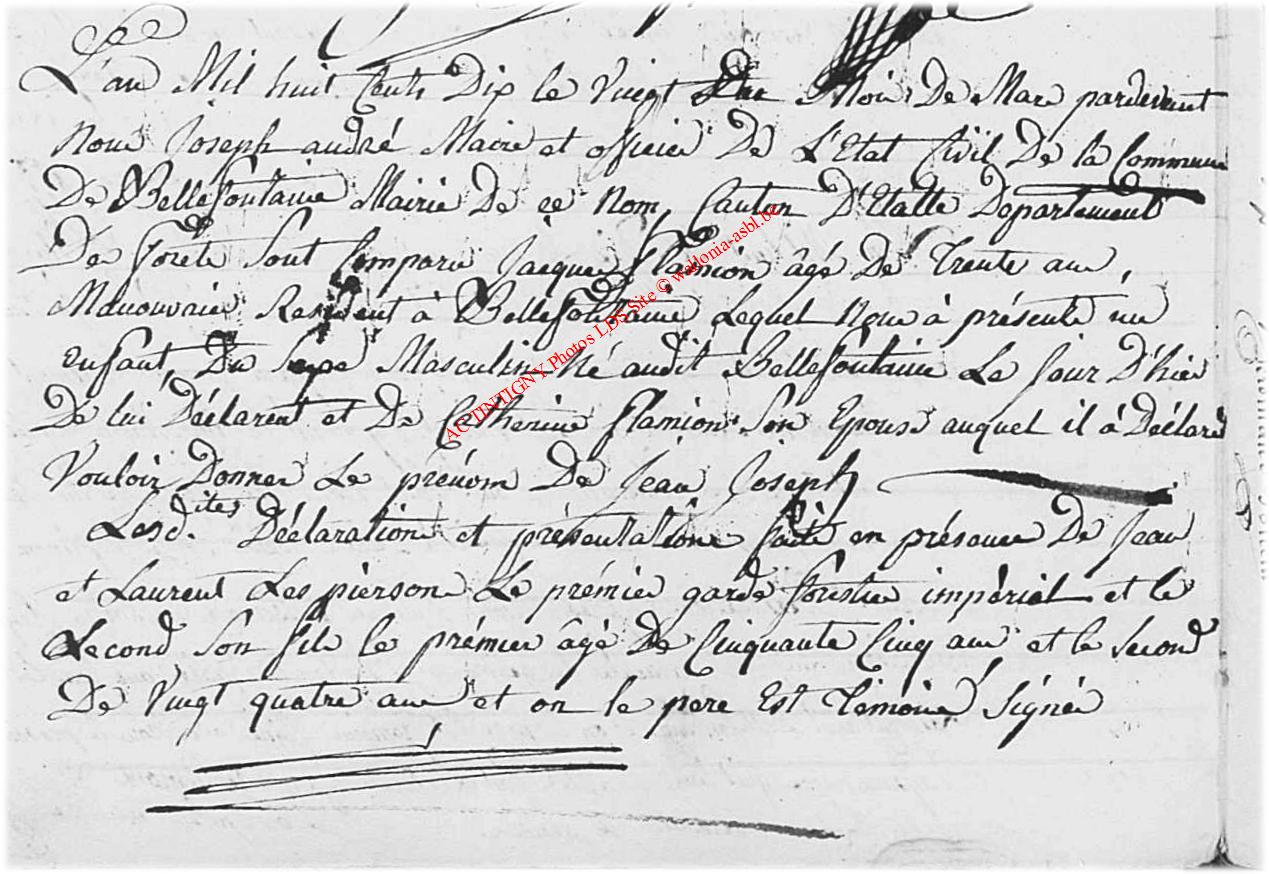 L'an Mil huit Cents Dix le Vingt Du Mois De Mars pardevant
Nous Joseph andré Maire et officier De L'Etat Civil De la Commune
De Bellefontaine Mairie De ce Nom, Canton D'Etalle Departement
De forêts Sont Comparu Jacques flamion âgé De Trente ans,
Manouvrier Resident à Bellefontaine Lequel Nous à présenté un
enfant, Du Sexe Masculin Né audit Bellefontaine Le Jour D'hier
De lui Déclarent et De Catherine flamion Son Epouse auquel il à Déclaré
Vouloir Donner Le prénom De Jean Joseph
Lesd.ites Déclaration et présentations faite en présence De Jean
et Laurent Les pierson Le prémier garde forestier impérial et le
Second Son fils le prémier âgé De Cinquante Cinq ans et le second
De Vingt quatre ans et on le pere Est Temoins Signés
ACTINTIGNY Photos LDS Site © wallonia-asbl.be